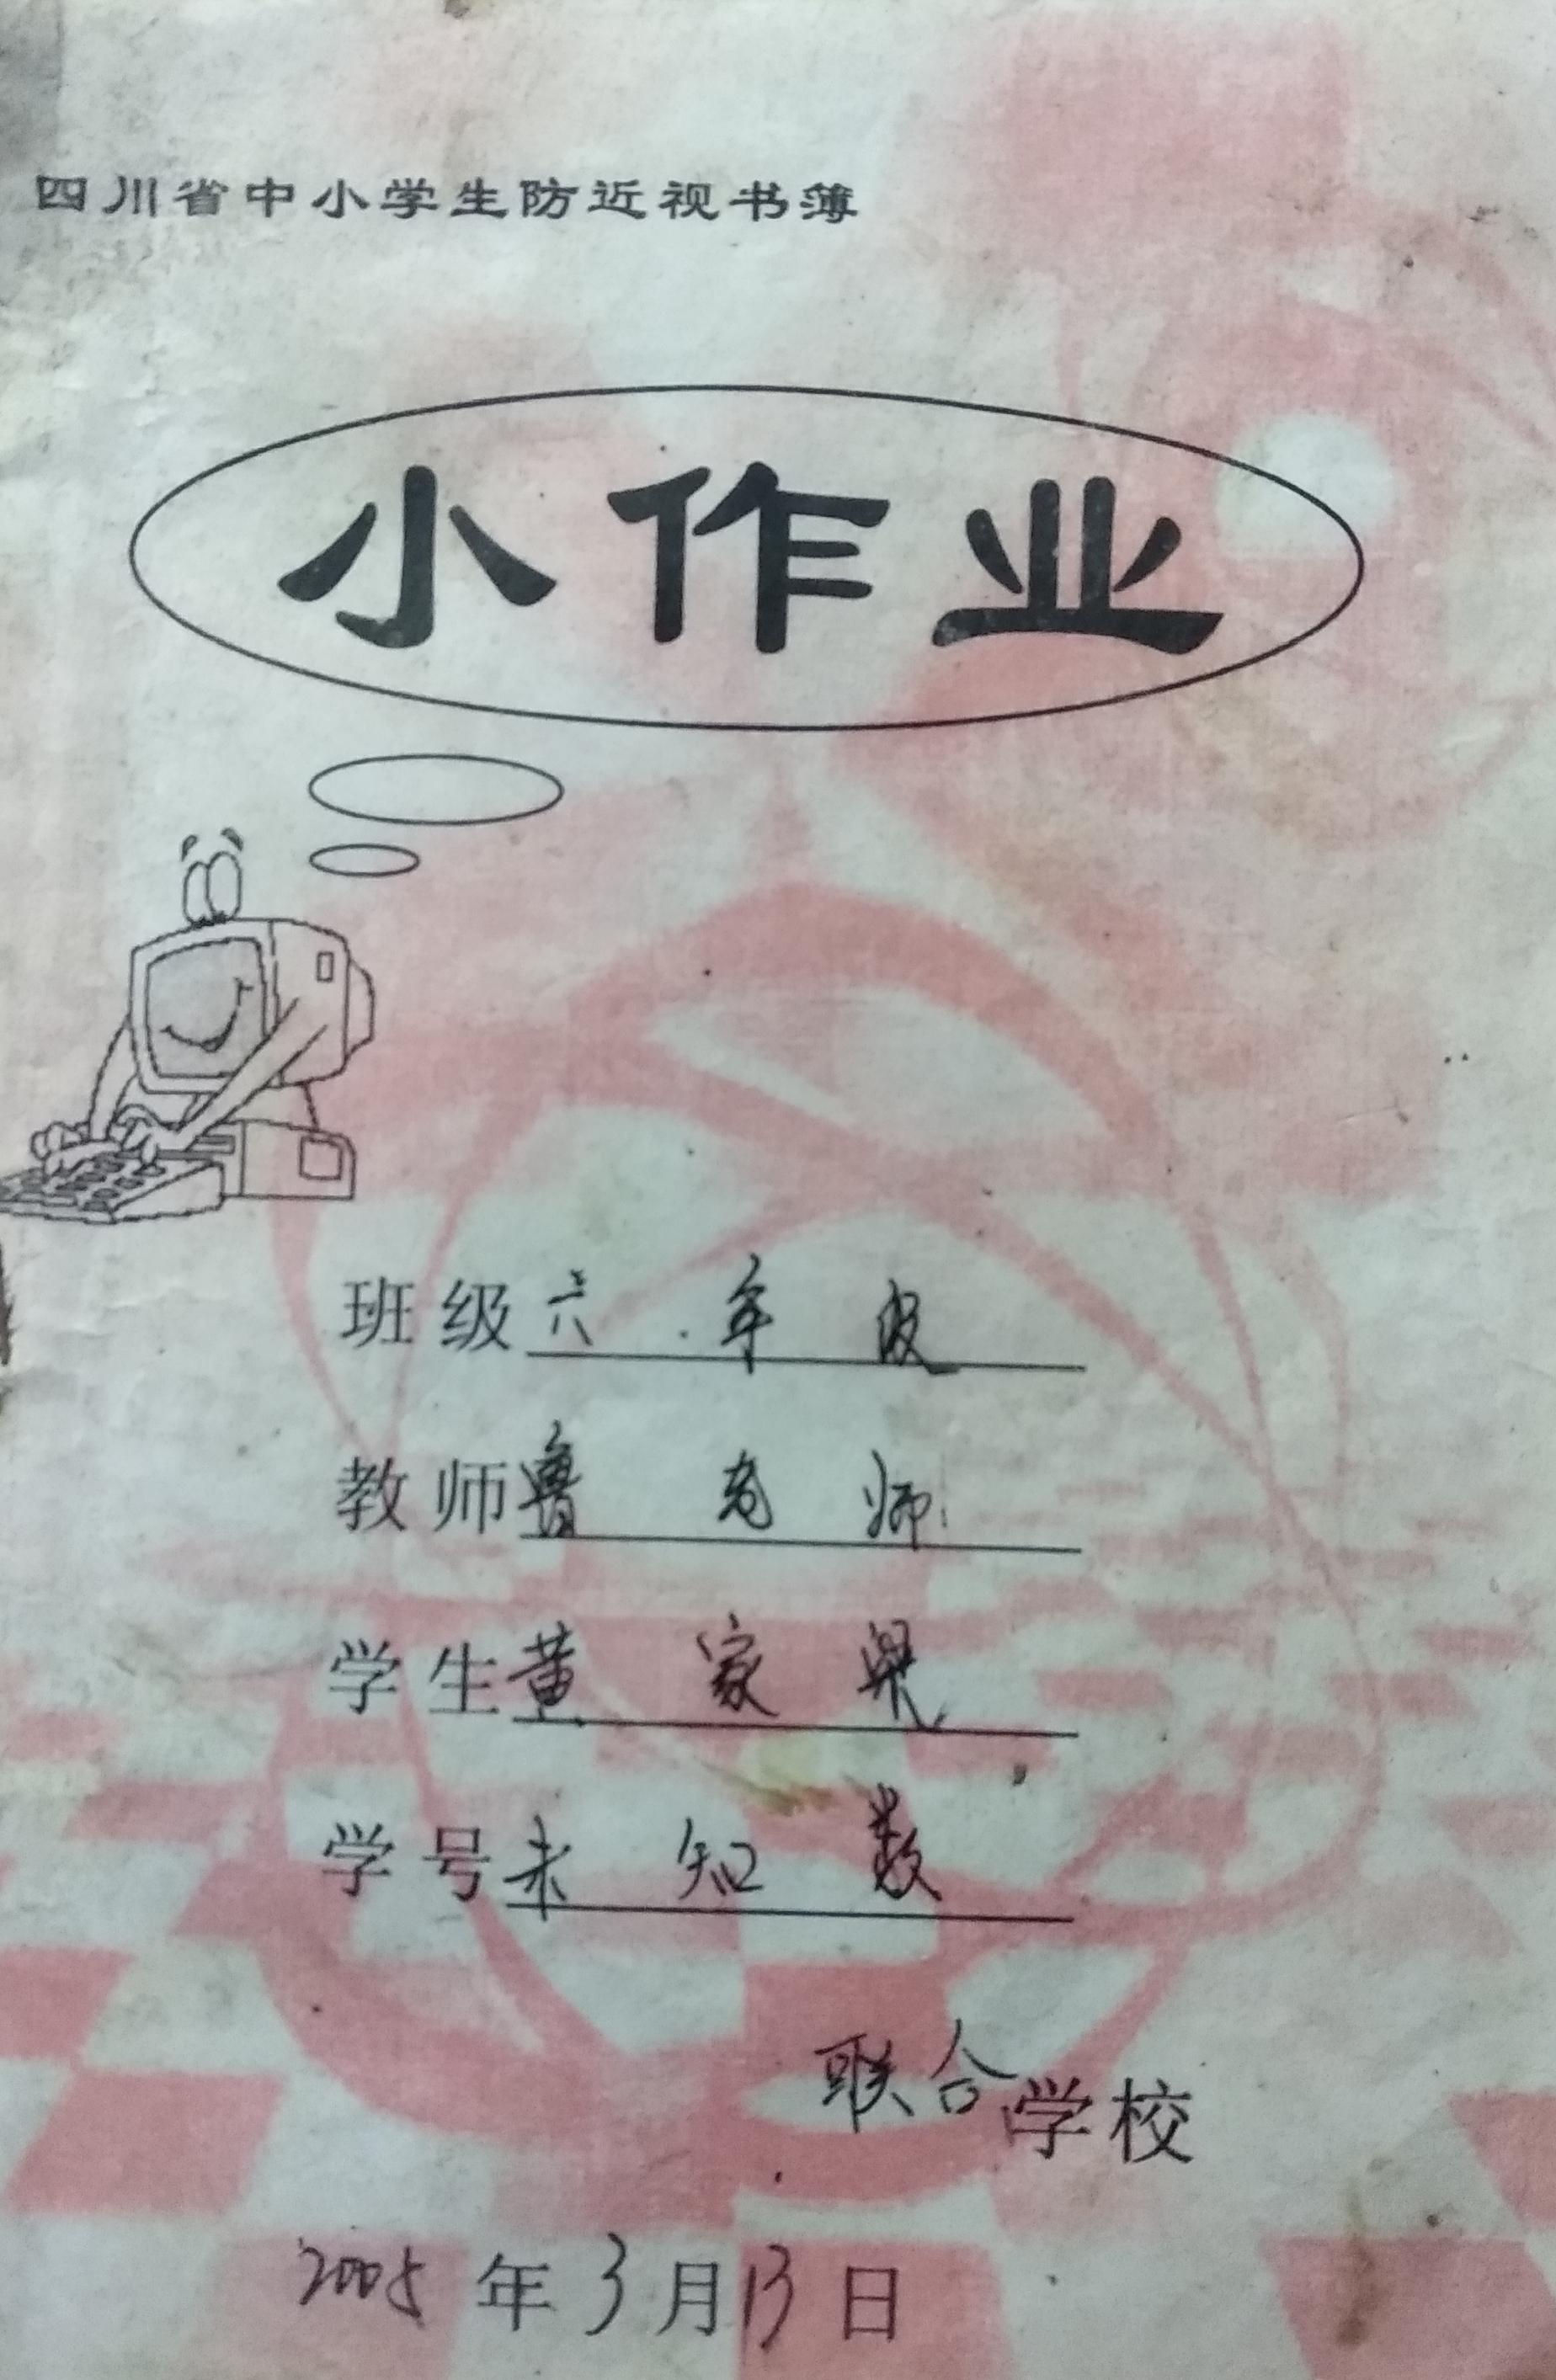 四川省中小学生防近视书簿
小作业
班级 六 年 级
教师 鲁 老 师
学生 黄 家
学号 未 知 数
联合学校
2005年3月13日